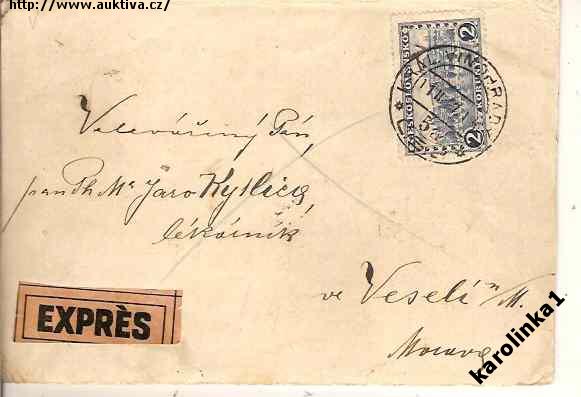 http://www.auktiva.cz/
2
ČESKOSLOVENSKO
2
KRÁL. VINOHRADY
Velevážený Pán,
pan Ph Mr Jaro Kytlica,
lékárník
ve Veselí n M.
Morava
EXPRÈS
karolinka1